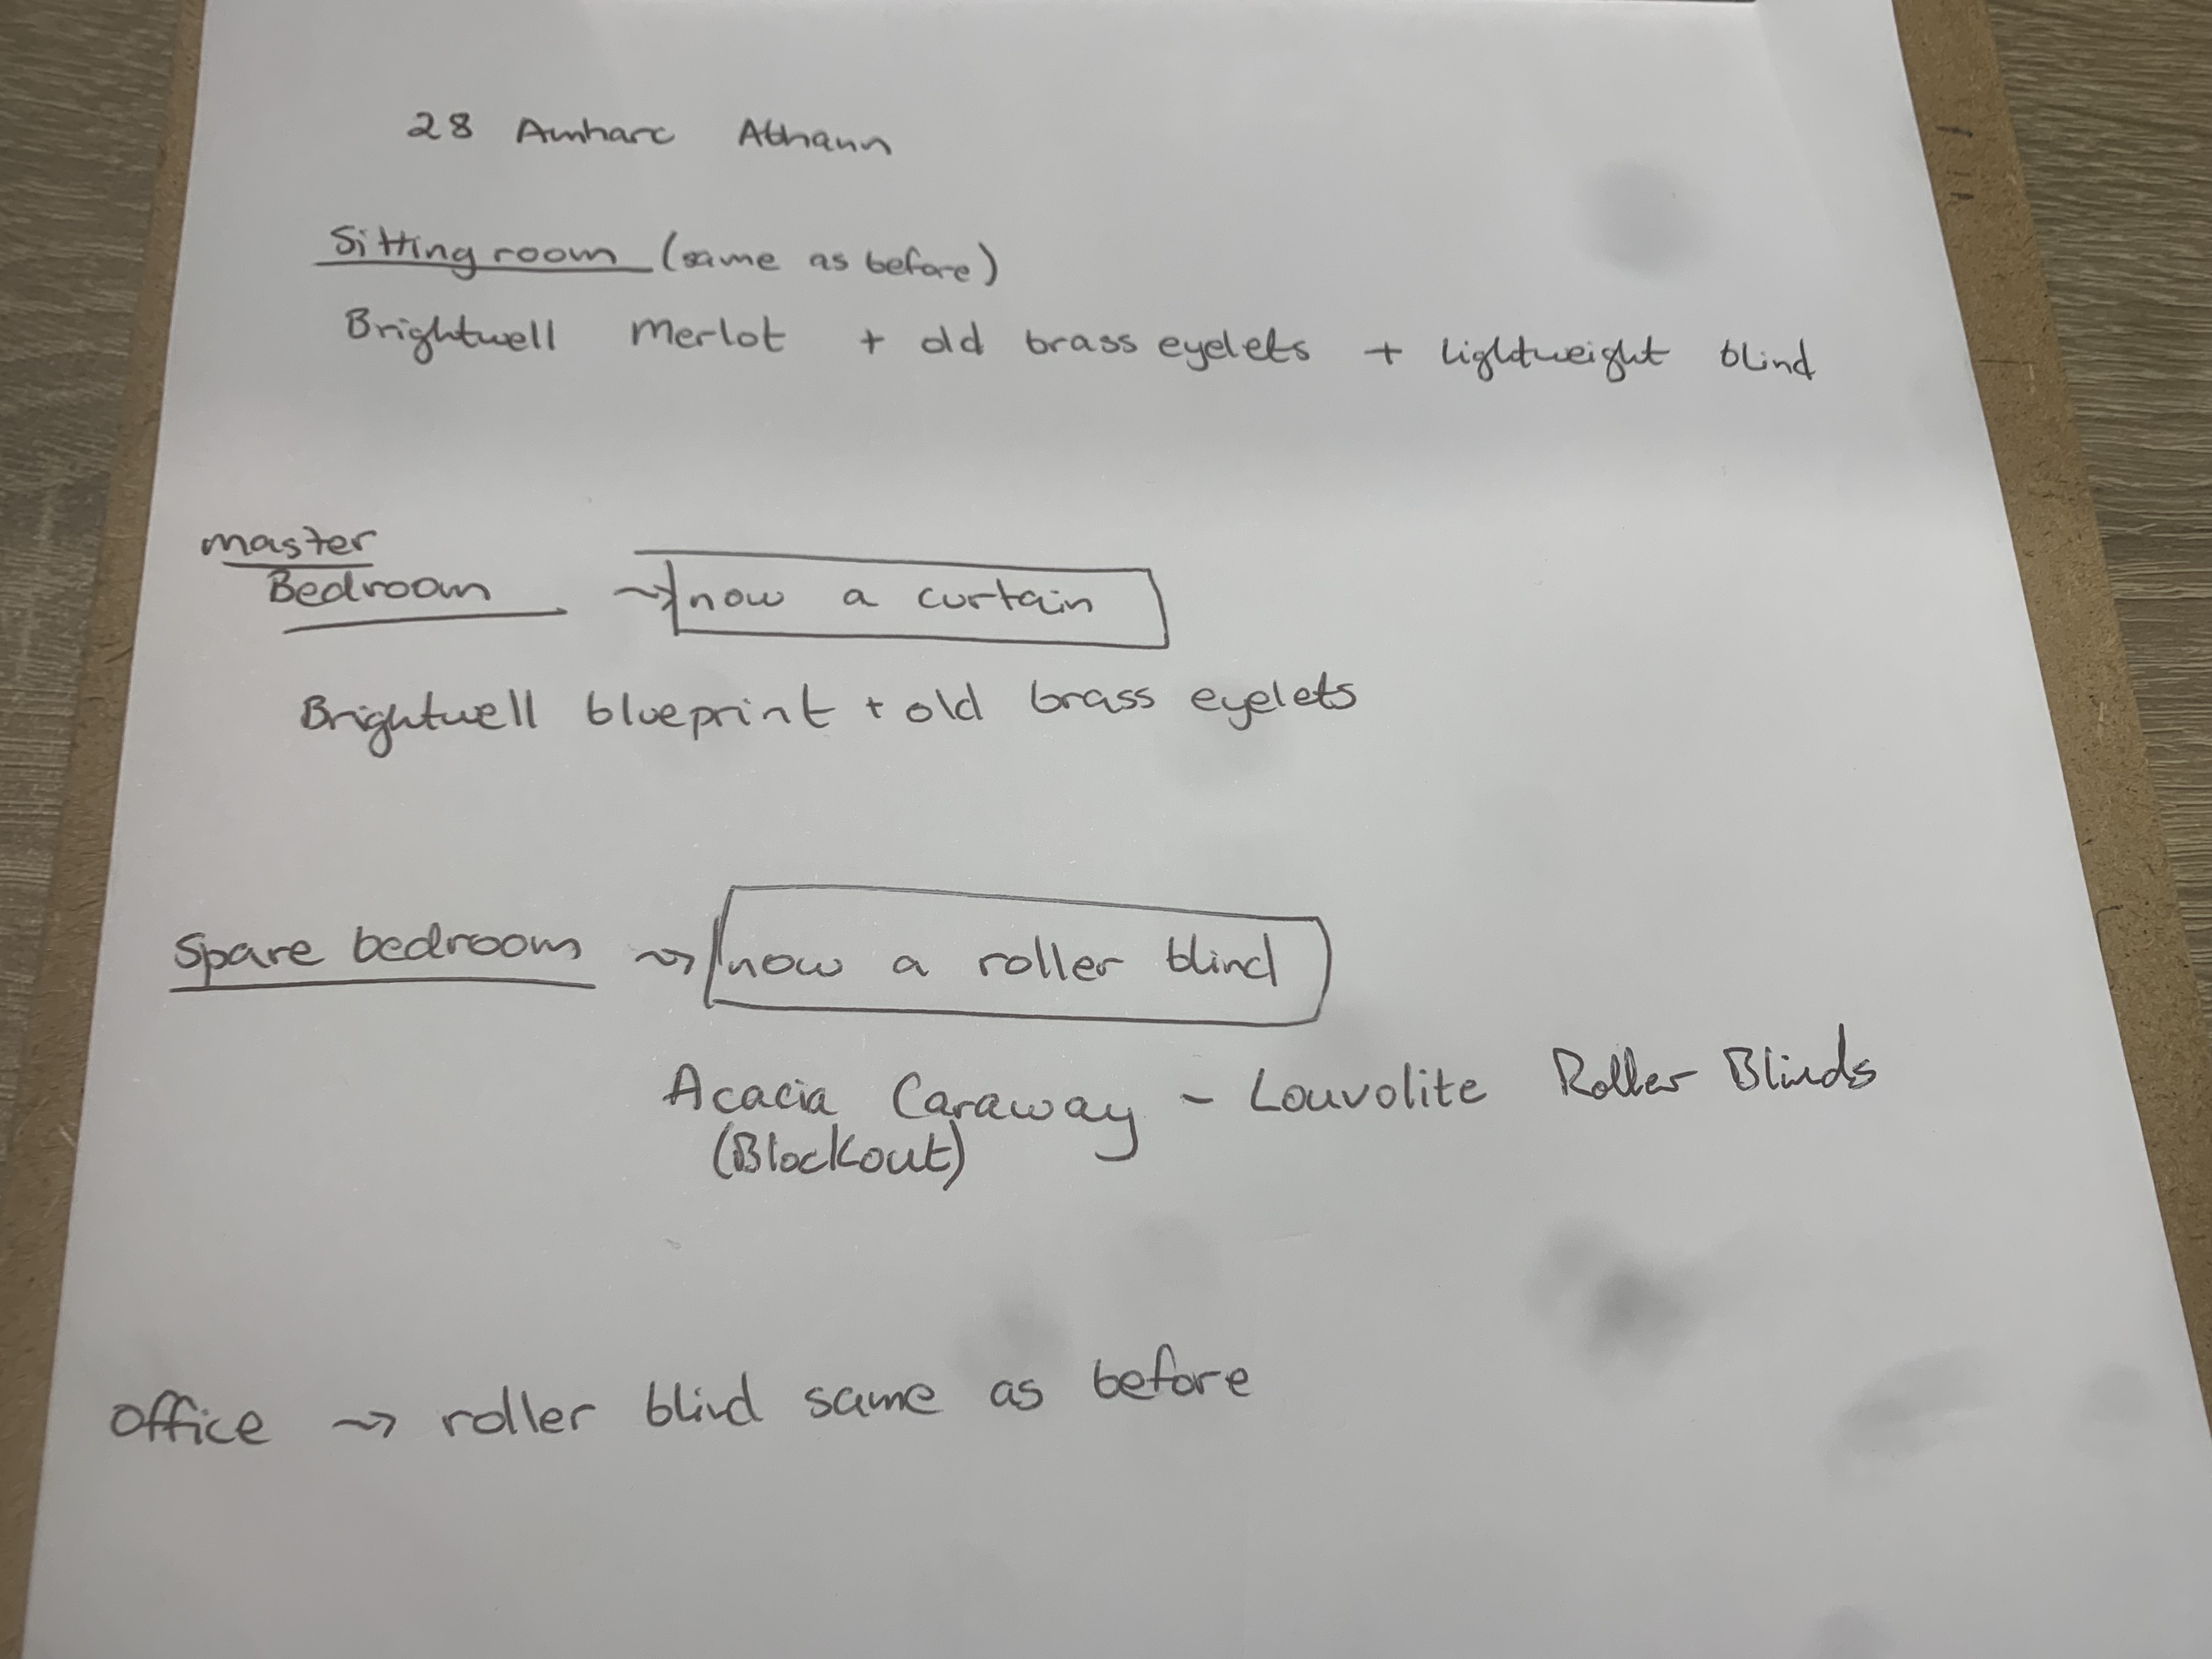 28 Amharc Abhann
Sitting room (same as before)
Brightwell Merlot + old brass eyelets + lightweight blind
master
Bedroom ⤳ now a curtain
Brightwell blueprint + old brass eyelets
Spare bedroom ⤳ now a roller blind
Acacia Caraway - Louvolite Roller Blinds
(Blockout)
office ⤳ roller blind same as before